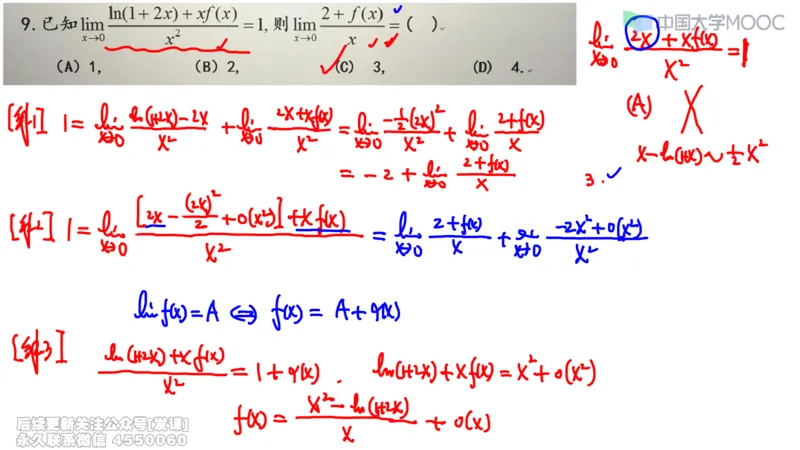 中国大学MOOC
9. 已知 lim_{x→0} \frac{ln(1+2x)+xf(x)}{x^2} = 1, 则 lim_{x→0} \frac{2+f(x)}{x} = ( ).
(A) 1, (B) 2, (C) 3, (D) 4.
lim_{x→0} \frac{2x+xf(x)}{x^2} = 1
(A) X
x-ln(1+x) ~ \frac{1}{2}x^2
[解1] 1 = lim_{x→0} \frac{ln(1+2x)-2x}{x^2} + lim_{x→0} \frac{2x+xf(x)}{x^2} = lim_{x→0} \frac{-\frac{1}{2}(2x)^2}{x^2} + lim_{x→0} \frac{2+f(x)}{x}
= -2 + lim_{x→0} \frac{2+f(x)}{x} 3.
[解2] 1 = lim_{x→0} \frac{[2x-\frac{(2x)^2}{2}+o(x^2)]+xf(x)}{x^2} = lim_{x→0} \frac{2+f(x)}{x} + lim_{x→0} \frac{-2x^2+o(x^2)}{x^2}
lim f(x) = A ⇔ f(x) = A+α(x)
[解3] \frac{ln(1+2x)+xf(x)}{x^2} = 1+α(x). ln(1+2x)+xf(x) = x^2+o(x^2)
f(x) = \frac{x^2-ln(1+2x)}{x} + o(x)
后续更新关注公众号[发课]
永久联系微信 4550060